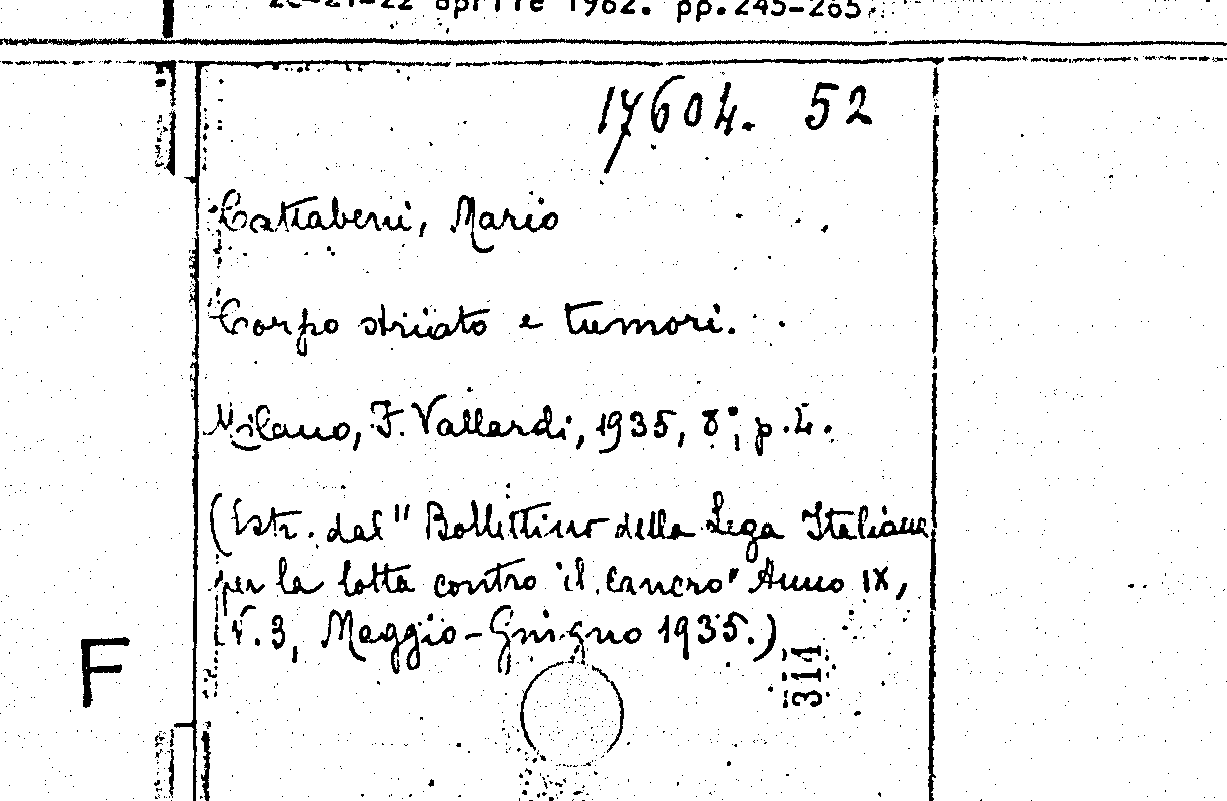 aprile 1962. pp.245-265.
17604. 52
Cattabeni, Mario
Corpo striato e tumori.
Milano, F. Vallardi, 1935, 8°, p.4.
(Estr. dal "Bollettino della Lega Italiana
per la lotta contro il cancro" Anno IX,
N.3, Maggio-Giugno 1935.)
311
F